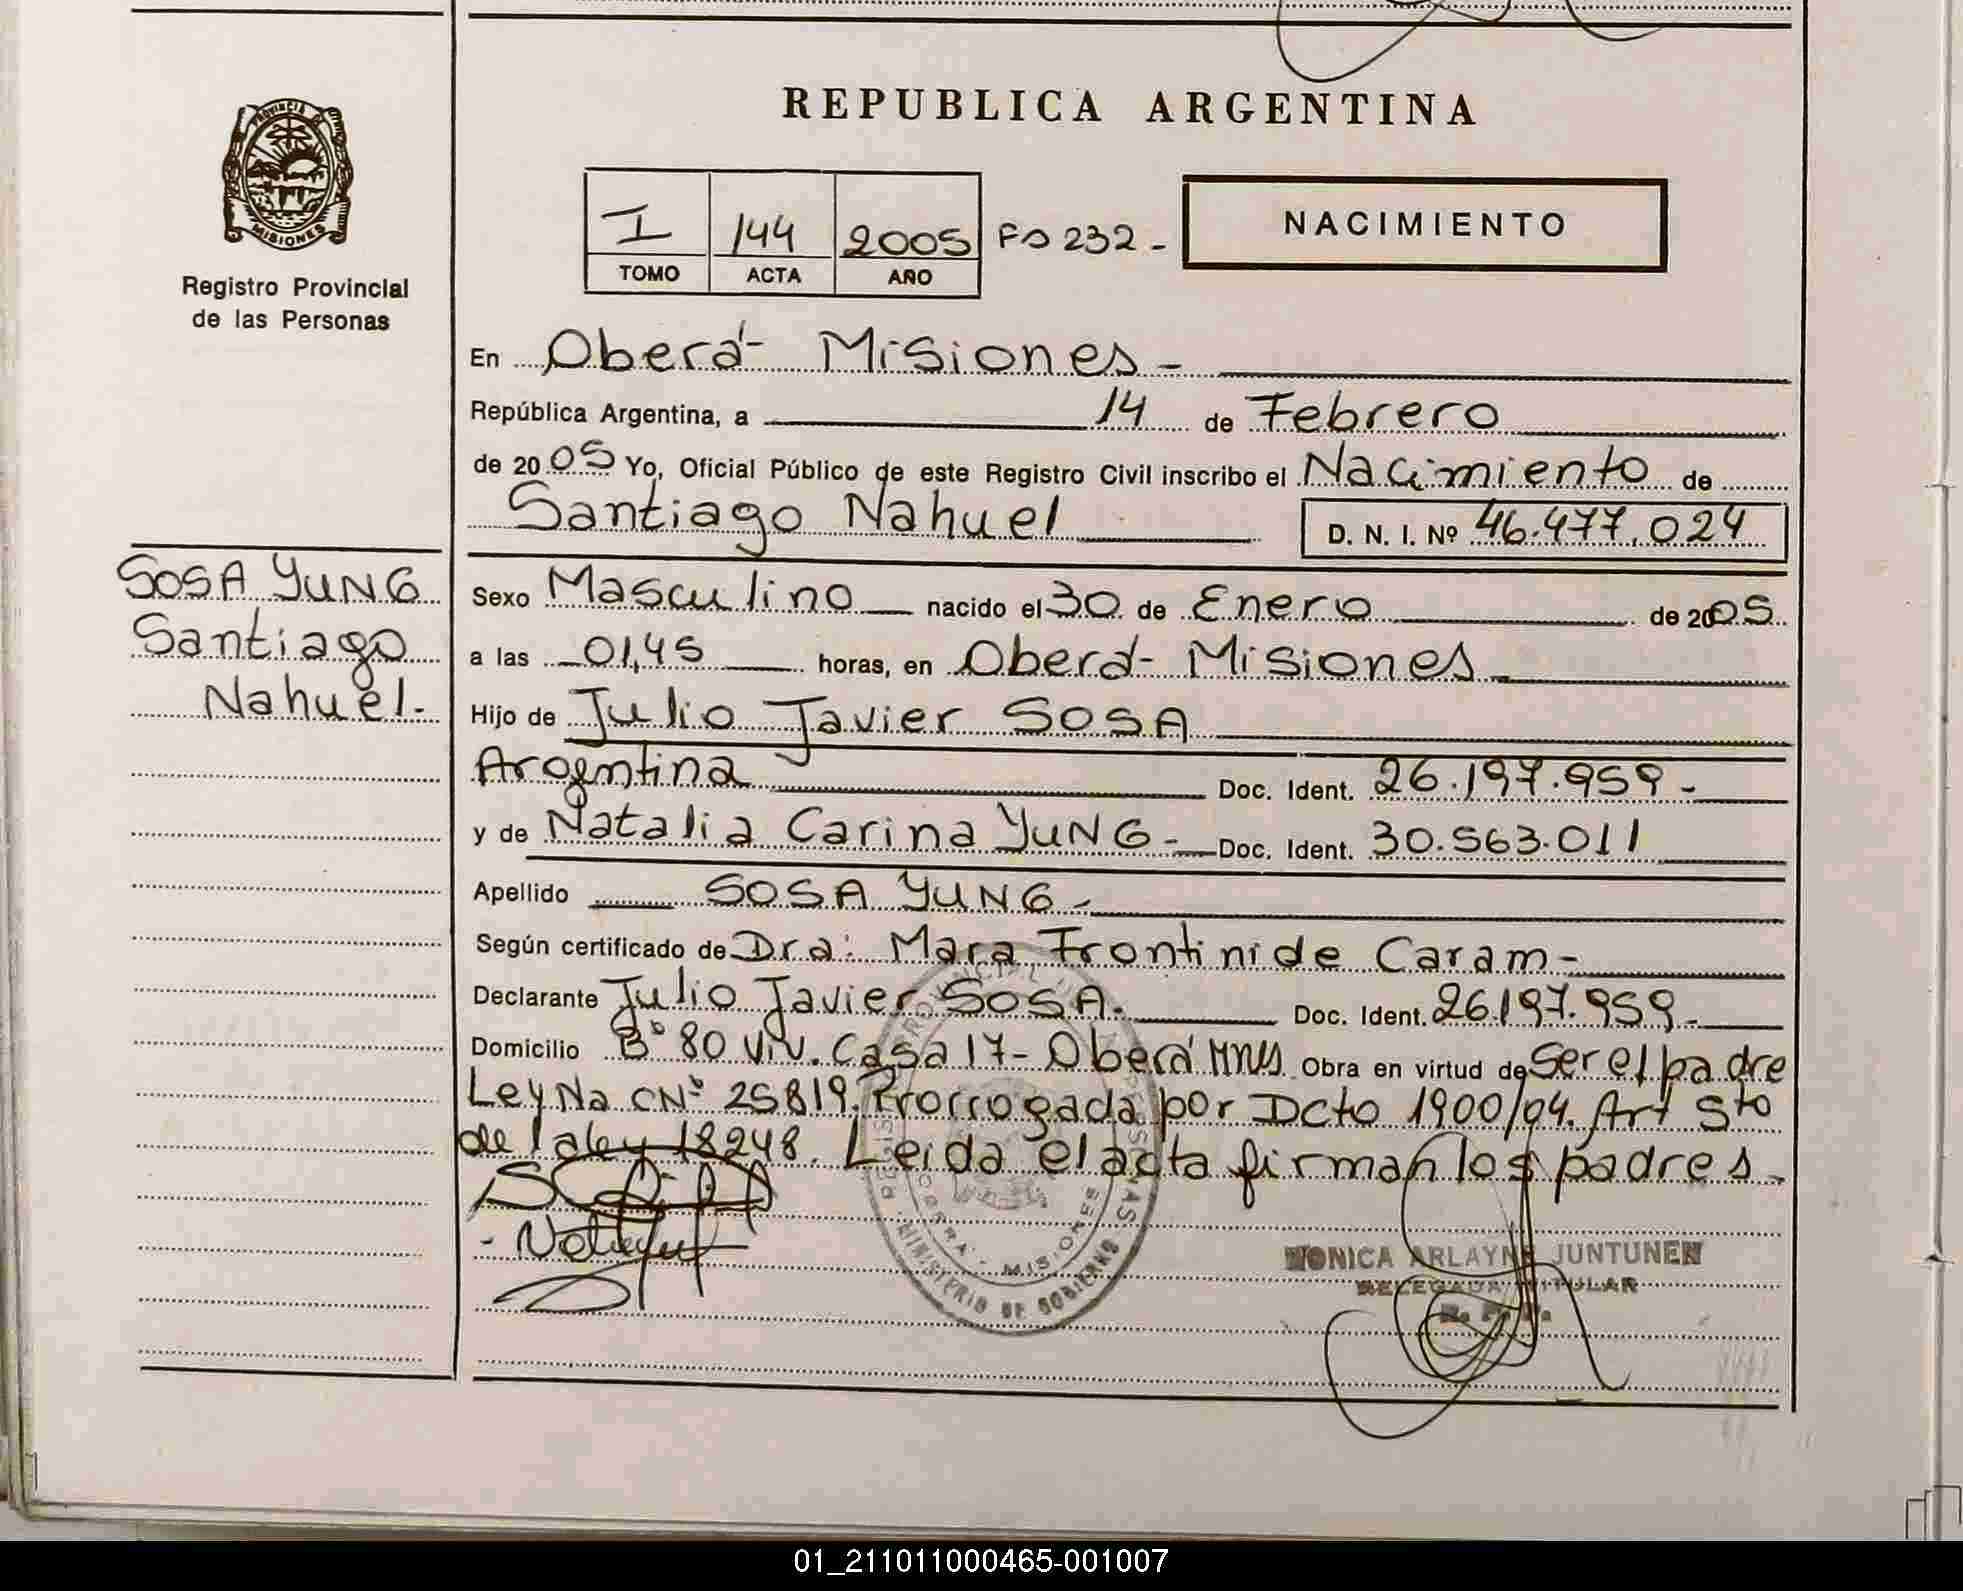 REPUBLICA ARGENTINA
PROVINCIA DE
MISIONES
Registro Provincial
de las Personas
I 144 2005 Fo 232-
TOMO ACTA AÑO
NACIMIENTO
En Oberá- Misiones-
República Argentina, a 14 de Febrero
de 2005 Yo, Oficial Público de este Registro Civil inscribo el Nacimiento de
Santiago Nahuel D. N. I. Nº 46.477.024
SOSA YUNG
Santiago
Nahuel.-
Sexo Masculino nacido el 30 de Enero de 2005
a las 01,45 horas, en Oberá- Misiones
Hijo de Julio Javier SOSA
Argentina Doc. Ident. 26.197.959-
y de Natalia Carina YUNG- Doc. Ident. 30.563.011
Apellido SOSA YUNG-
Según certificado de Dra: Mara Frontini de Caram-
Declarante Julio Javier SOSA. Doc. Ident. 26.197.959-
Domicilio Bº 80 Viv. Casa 17- Oberá Mnes Obra en virtud de Ser el padre
Ley Nacnº 25819. Prorrogada por Dcto 1900/04. Art 5to
de la ley 18248. Leida el acta firman los padres-
MINISTERIO DE GOBIERNO
OBERA - MISIONES
MONICA ARLAYNE JUNTUNEN
DELEGADA TITULAR
R. P. P.
01_211011000465-001007